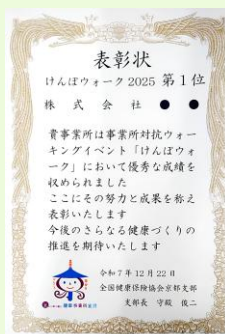 表彰状
けんぽウォーク2025 第1位
株式会社●●
貴事業所は事業所対抗ウォー
キングイベント「けんぽウォ
ーク」において優秀な成績を
収められました
ここにその努力と成果を称え
表彰いたします
今後のさらなる健康づくりの
推進を期待いたします
令和7年12月22日
全国健康保険協会京都支部
支部長 守殿 俊二